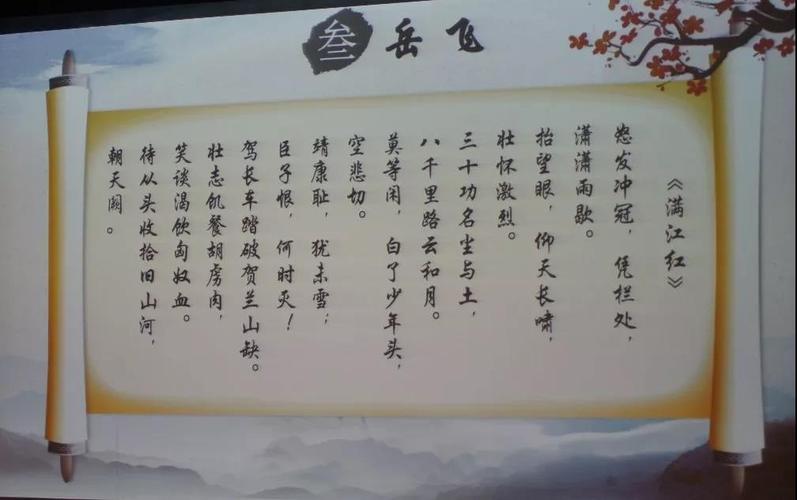 叁 岳飞
《满江红》
怒发冲冠，凭栏处，
潇潇雨歇。
抬望眼，仰天长啸，
壮怀激烈。
三十功名尘与土，
八千里路云和月。
莫等闲，白了少年头，
空悲切。
靖康耻，犹未雪；
臣子恨，何时灭！
驾长车踏破贺兰山缺。
壮志飢餐胡虏肉，
笑谈渴饮匈奴血。
待从头收拾旧山河，
朝天阙。